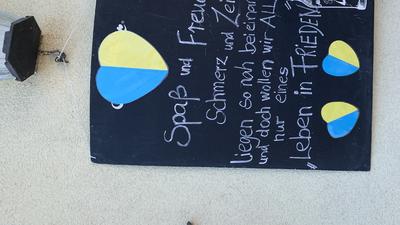 Spaß und Freud
Schmerz und Lei
liegen so nah beieinan
und doch wollen wir ALL
nur eines
„Leben in FRIEDEN